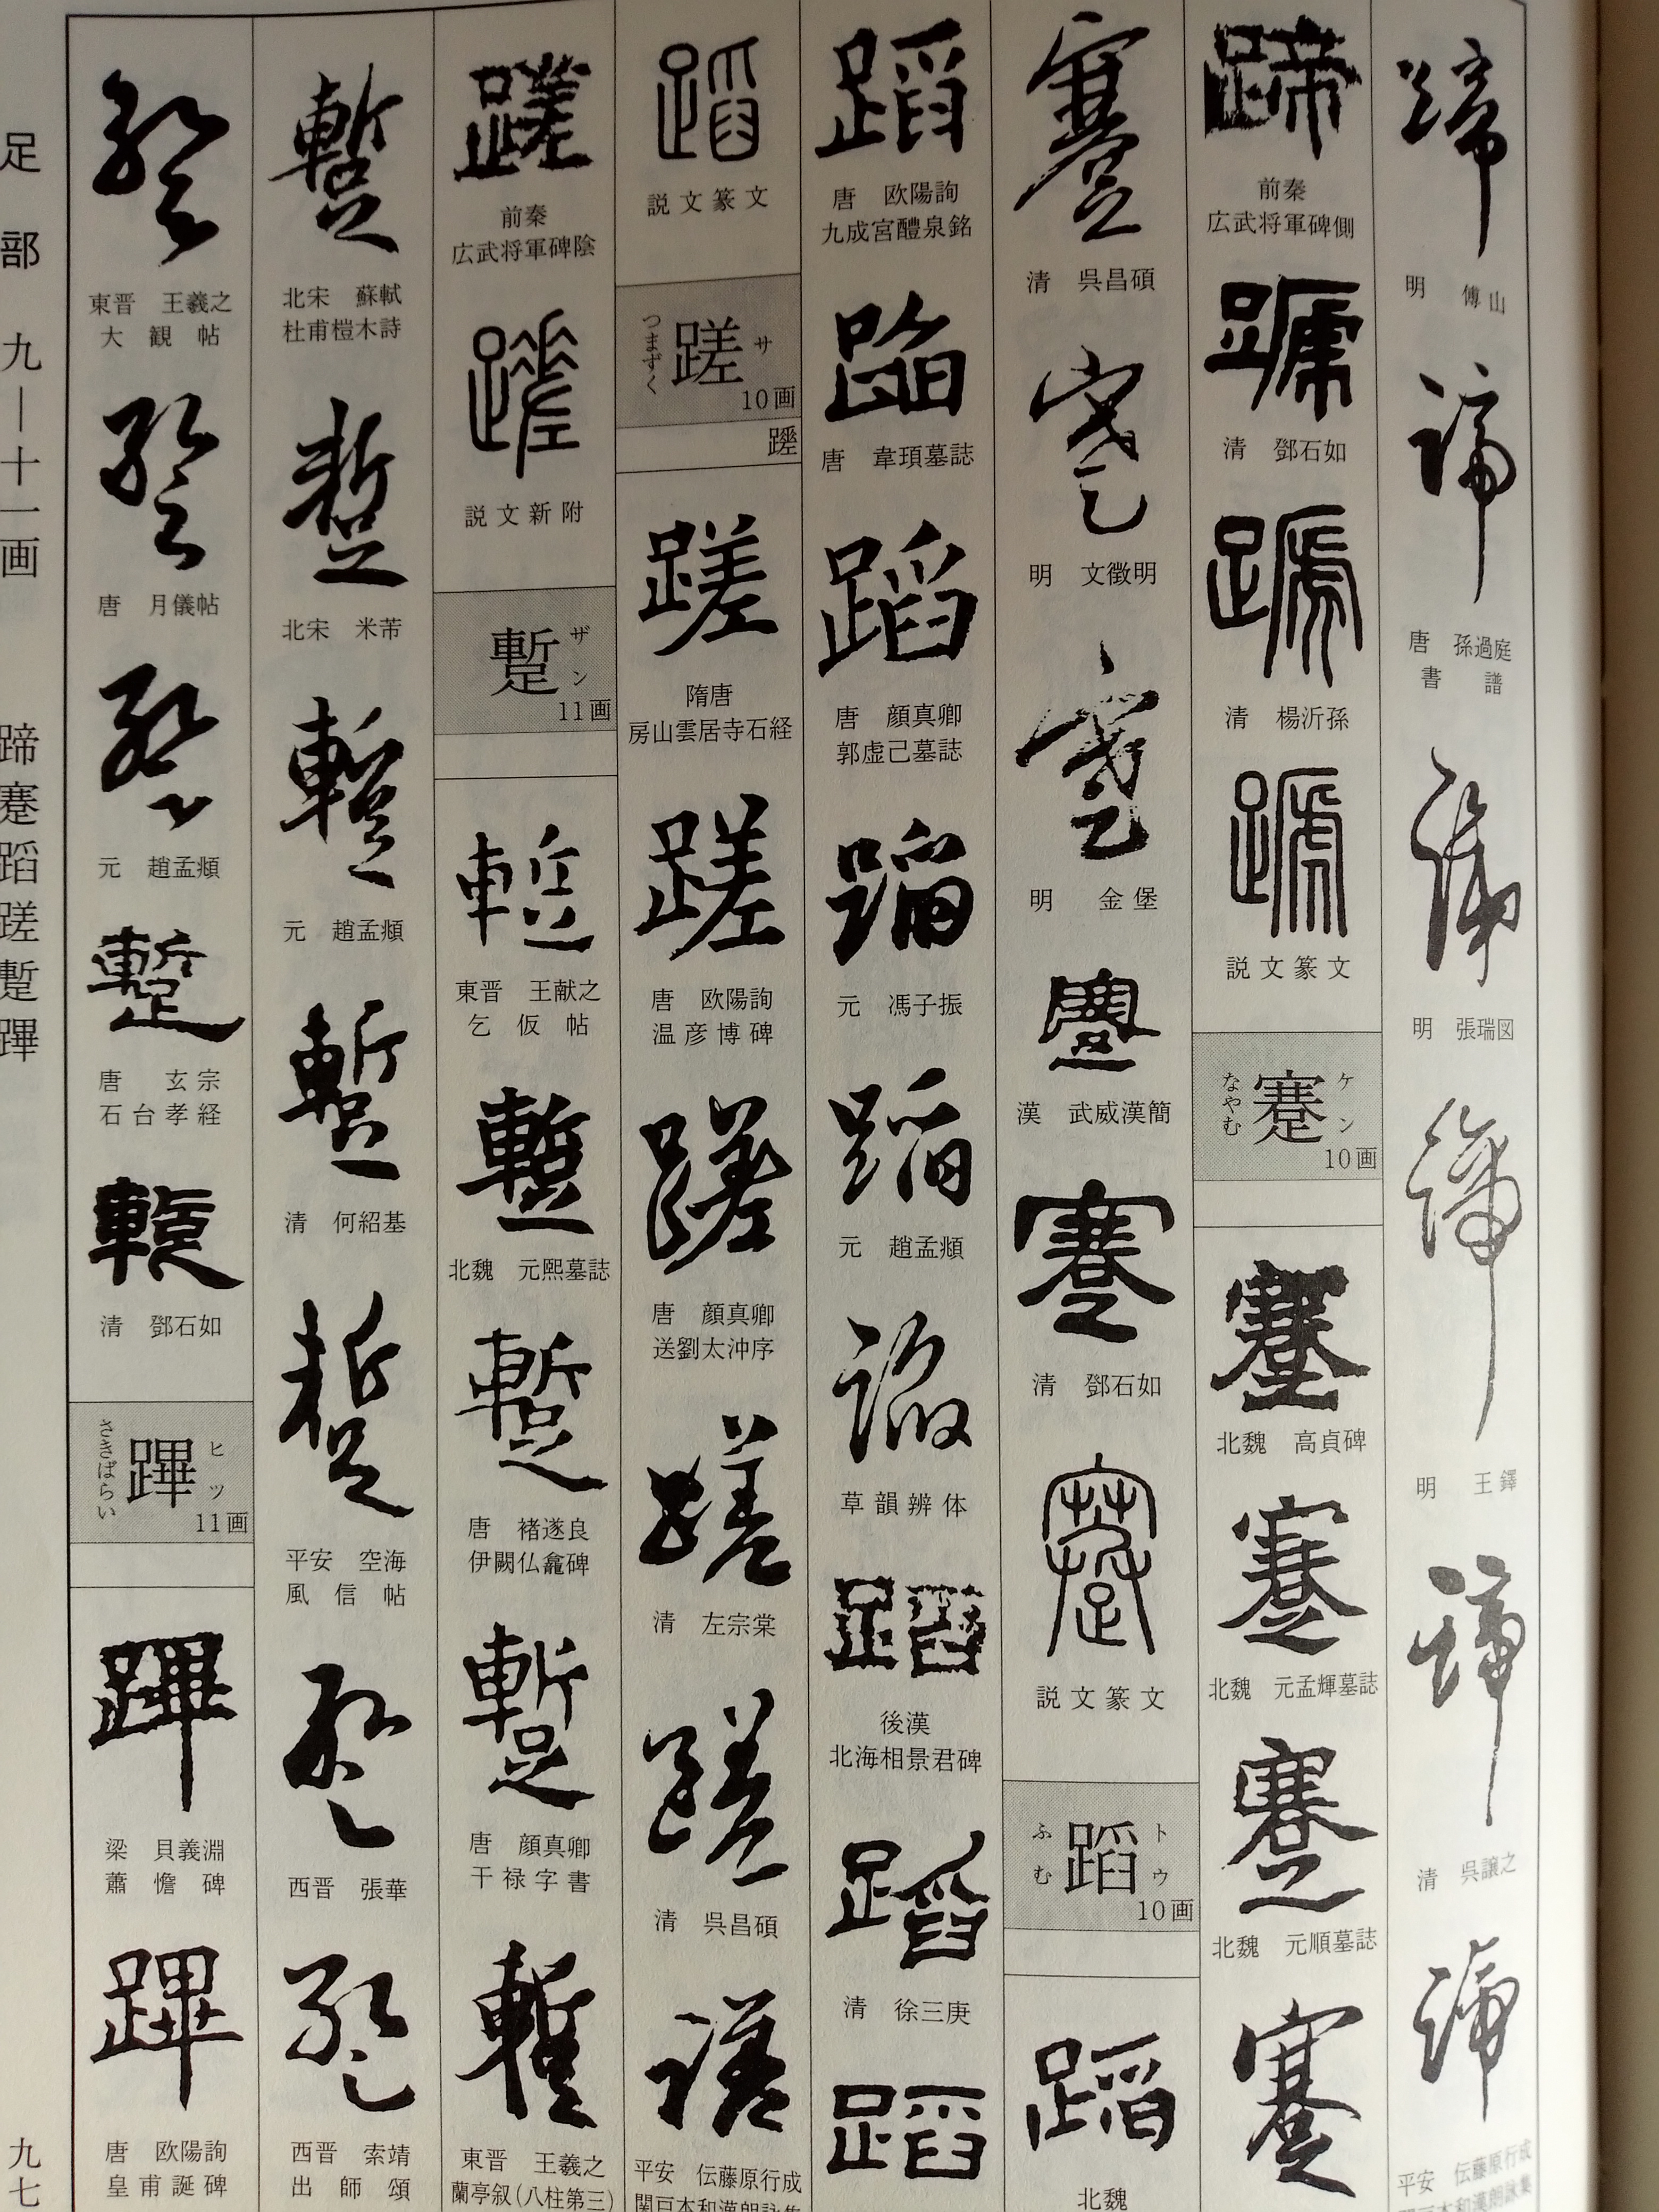 蹄
明 傅山
蹄
唐 孫過庭
書譜
蹄
明 張瑞図
蹄
明 王鐸
蹄
清 呉譲之
蹄
平安 伝藤原行成
蹄
前秦
広武将軍碑側
蹏
清 鄧石如
蹏
清 楊沂孫
蹏
説文篆文
ケン
蹇
なやむ
10画
蹇
北魏 高貞碑
蹇
北魏 元孟輝墓誌
蹇
北魏 元順墓誌
蹇
蹇
清 呉昌碩
蹇
明 文徵明
蹇
明 金堡
蹇
漢 武威漢簡
蹇
清 鄧石如
蹇
説文篆文
トウ
蹈
ふむ
10画
蹈
北魏
蹈
唐 欧陽詢
九成宮醴泉銘
蹈
唐 韋頊墓誌
蹈
唐 顔真卿
郭虚己墓誌
蹈
元 馮子振
蹈
元 趙孟頫
蹈
草韻辨体
蹈
後漢
北海相景君碑
蹈
清 徐三庚
蹈
蹈
説文篆文
サ
蹉
つまずく
10画
蹉
隋唐
房山雲居寺石経
蹉
唐 欧陽詢
温彦博碑
蹉
唐 顔真卿
送劉太沖序
蹉
清 左宗棠
蹉
清 呉昌碩
蹉
平安 伝藤原行成
関戸本和漢朗詠集
蹉
前秦
広武将軍碑陰
蹉
説文新附
ザン
蹔
11画
蹔
東晋 王献之
乞仮帖
蹔
北魏 元熙墓誌
蹔
唐 褚遂良
伊闕仏龕碑
蹔
唐 顔真卿
干禄字書
蹔
東晋 王羲之
蘭亭叙(八柱第三)
蹔
北宋 蘇軾
杜甫榿木詩
蹔
北宋 米芾
蹔
元 趙孟頫
蹔
清 何紹基
蹔
平安 空海
風信帖
蹔
西晋 張華
蹔
西晋 索靖
出師頌
蹔
東晋 王羲之
大観帖
蹔
唐 月儀帖
蹔
元 趙孟頫
蹔
唐 玄宗
石台孝経
蹔
清 鄧石如
ヒツ
蹕
さきばらい
11画
蹕
梁 貝義淵
蕭憺碑
蹕
唐 欧陽詢
皇甫誕碑
足部 九—十一画 蹄蹇蹈蹉蹔蹕
九七